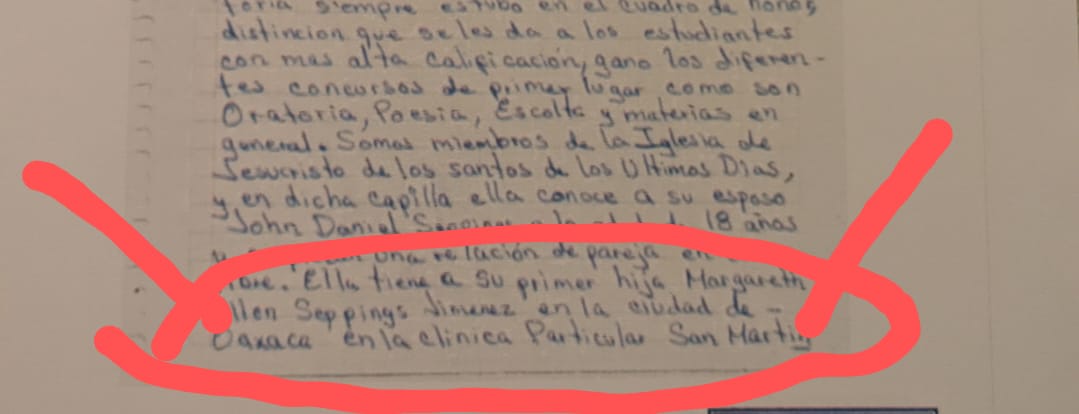 siempre estubo en el cuadro de honor,
distincion que se les da a los estudiantes
con mas alta calificación, gano los diferen-
tes concursos de primer lugar como son
Oratoria, Poesia, Escolta y materias en
general. Somos miembros de la Iglesia de
Jesucristo de los santos de los Ultimos Dias,
y en dicha capilla ella conoce a su esposo
John Daniel 18 años
una relación de pareja en
Ella tiene a su primer hija Margareth
Ellen Seppings Jimenez en la ciudad de -
Oaxaca en la clinica Particular San Martin